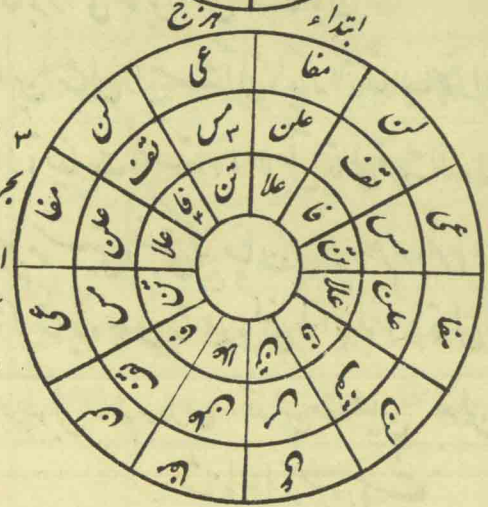 ابتداء هزج
مفا عی لن مفا عی لن مفا عی لن مفا عی لن
علن مس ۳ تف علن مس تف علن مس تف علن مس تف
علا تن فا ۲ علا تن فا علا تن فا علا تن فا
۳